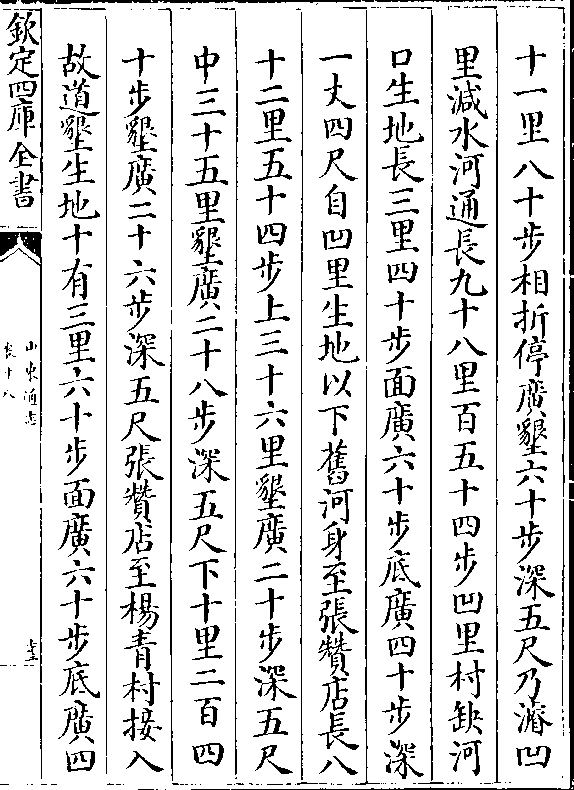 十一里八十步相折停廣墾六十步深五尺乃濬凹
里減水河通長九十八里百五十四步凹里村缺河
口生地長三里四十步面廣六十步底廣四十步深
一丈四尺自凹里生地以下舊河身至張贊店長八
十二里五十四步上三十六里墾廣二十步深五尺
中三十五里墾廣二十八步深五尺下十里二百四
十步墾廣二十六步深五尺張贊店至楊青村接入
故道墾生地十有三里六十步面廣六十步底廣四
欽定四庫全書
山東通志
卷十八